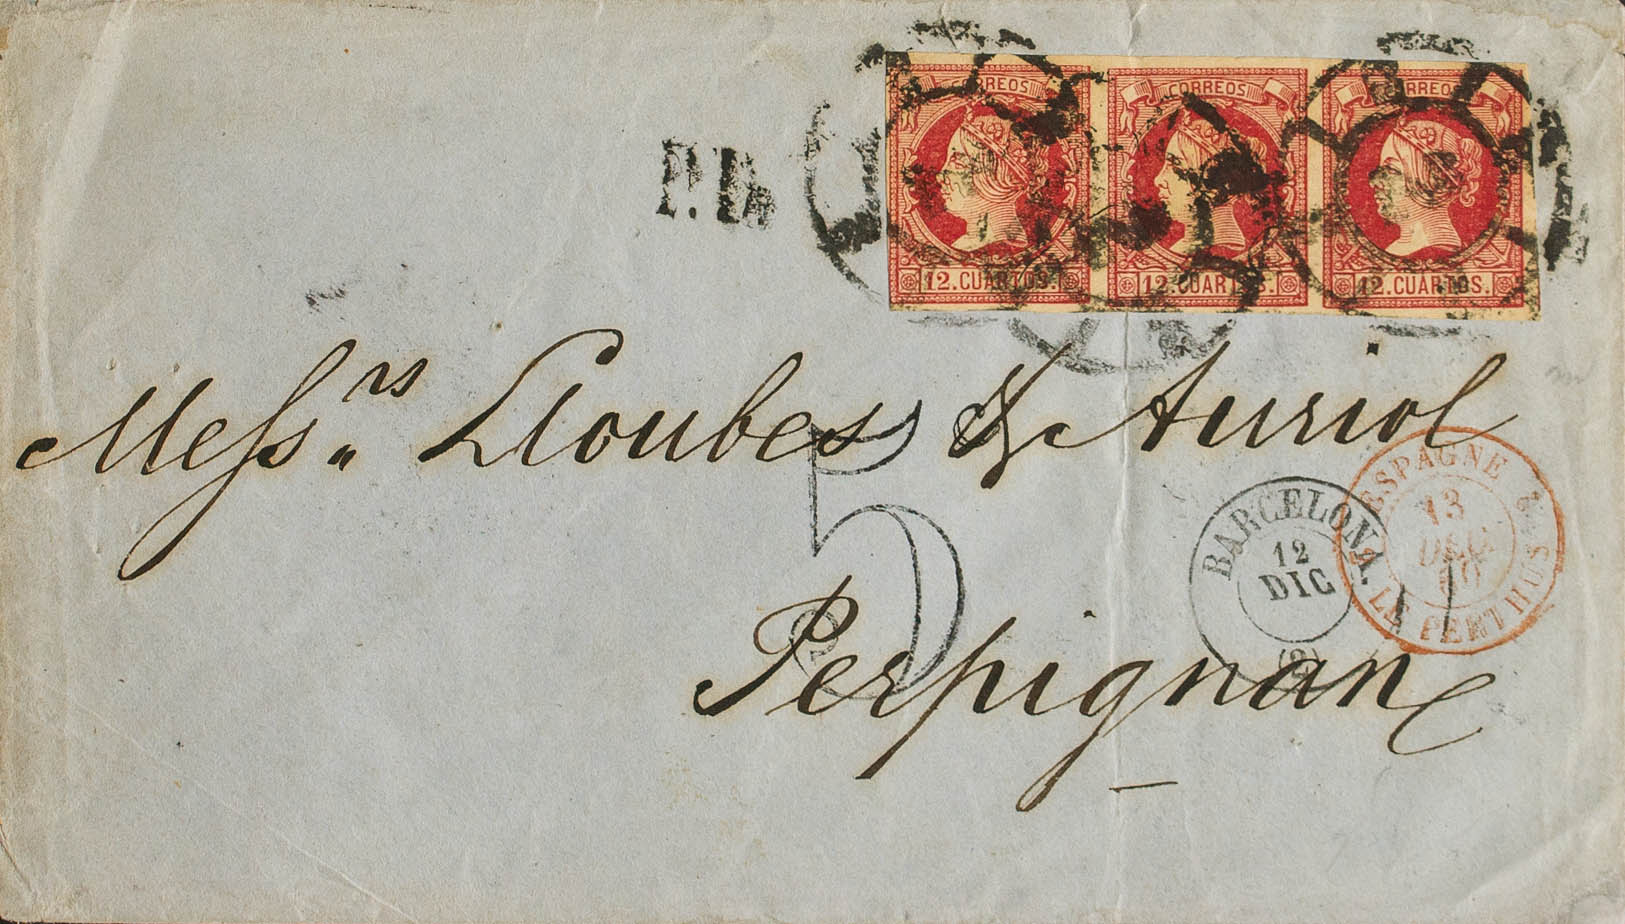 CORREOS CORREOS CORREOS
P.D.
12.CUARTOS. 12.CUARTOS. 12.CUARTOS.
Messrs. Lloubes & Auriol
5
ESPAGNE
13
DEC.
60
LE PERTHUS
BARCELONA.
12
DIC
(2)
Perpignan